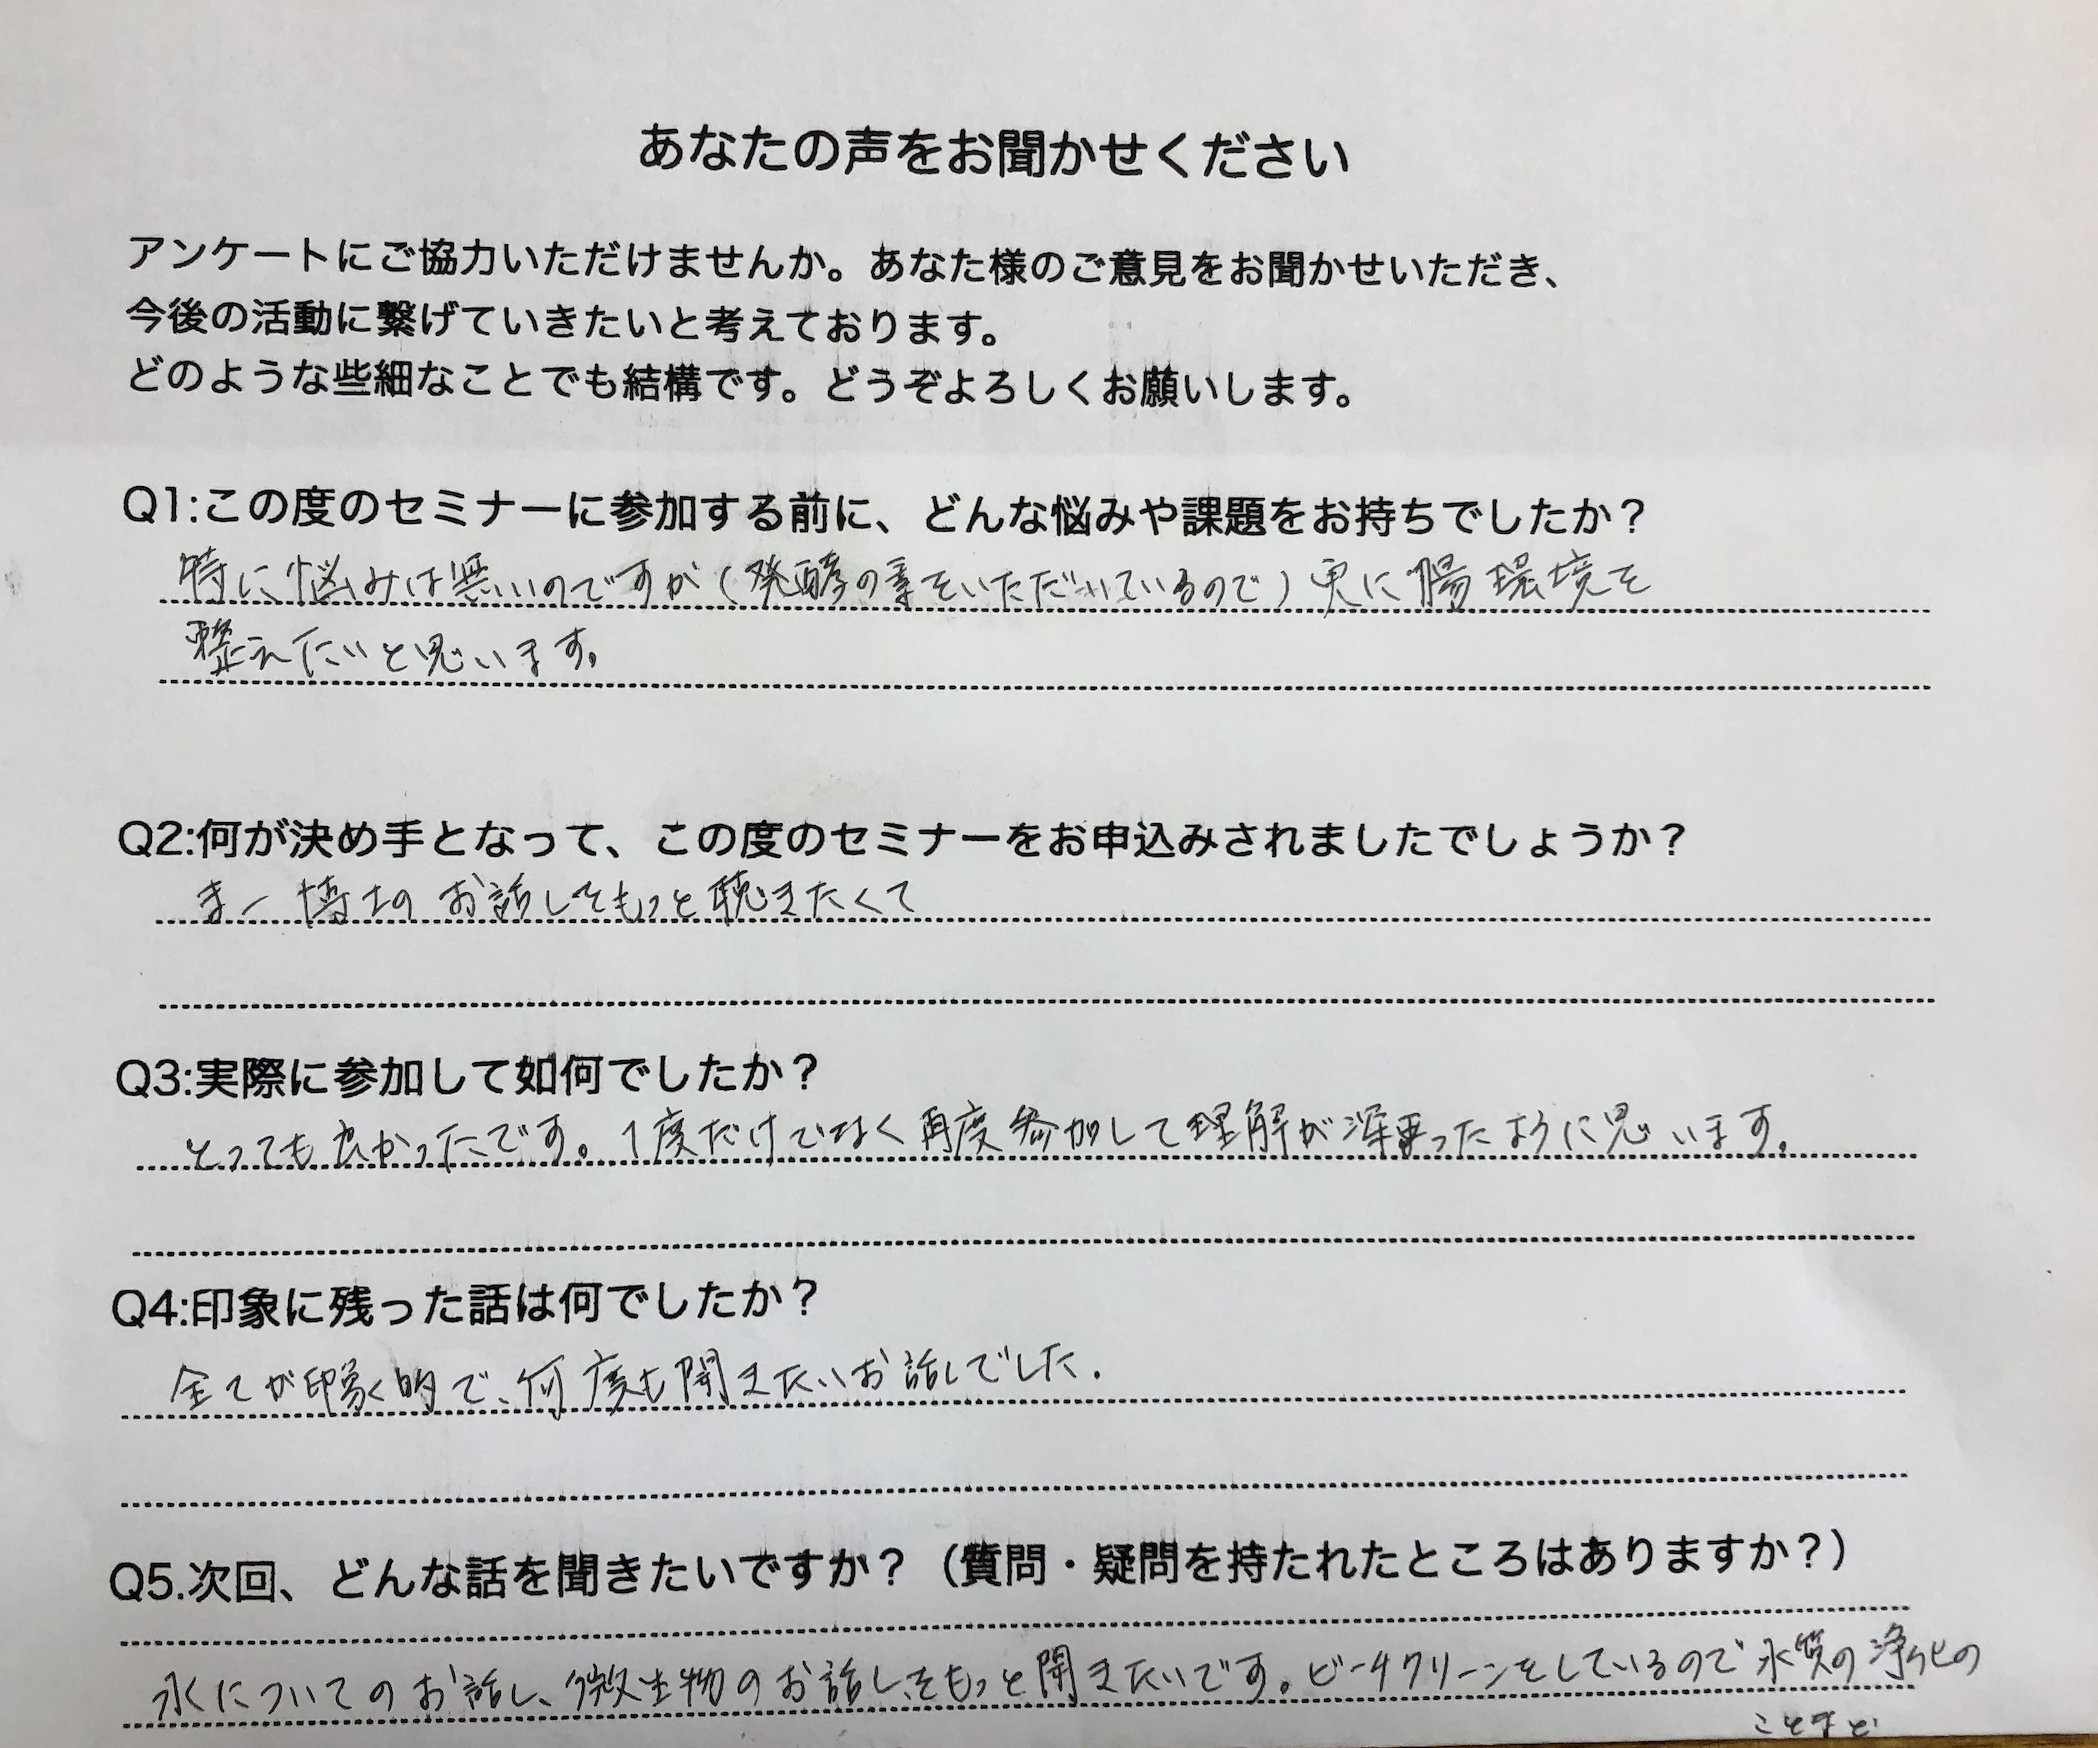 あなたの声をお聞かせください
アンケートにご協力いただけませんか。あなた様のご意見をお聞かせいただき、
今後の活動に繋げていきたいと考えております。
どのような些細なことでも結構です。どうぞよろしくお願いします。
Q1:この度のセミナーに参加する前に、どんな悩みや課題をお持ちでしたか？
特に悩みは無いのですが（発酵の素をいただいているので）更に腸環境を
整えたいと思います。
Q2:何が決め手となって、この度のセミナーをお申込みされましたでしょうか？
まー博士のお話しをもっと聴きたくて
Q3:実際に参加して如何でしたか？
とっても良かったです。1度だけでなく再度参加して理解が深まったように思います。
Q4:印象に残った話は何でしたか？
全てが印象的で、何度も聞きたいお話しでした.
Q5.次回、どんな話を聞きたいですか？（質問・疑問を持たれたところはありますか？）
水についてのお話し、微生物のお話しをもっと聞きたいです。ビーチクリーンをしているので水質の浄化の
ことなど